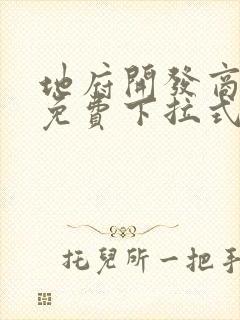 地府開發商
免費下拉式
托兒所一把手